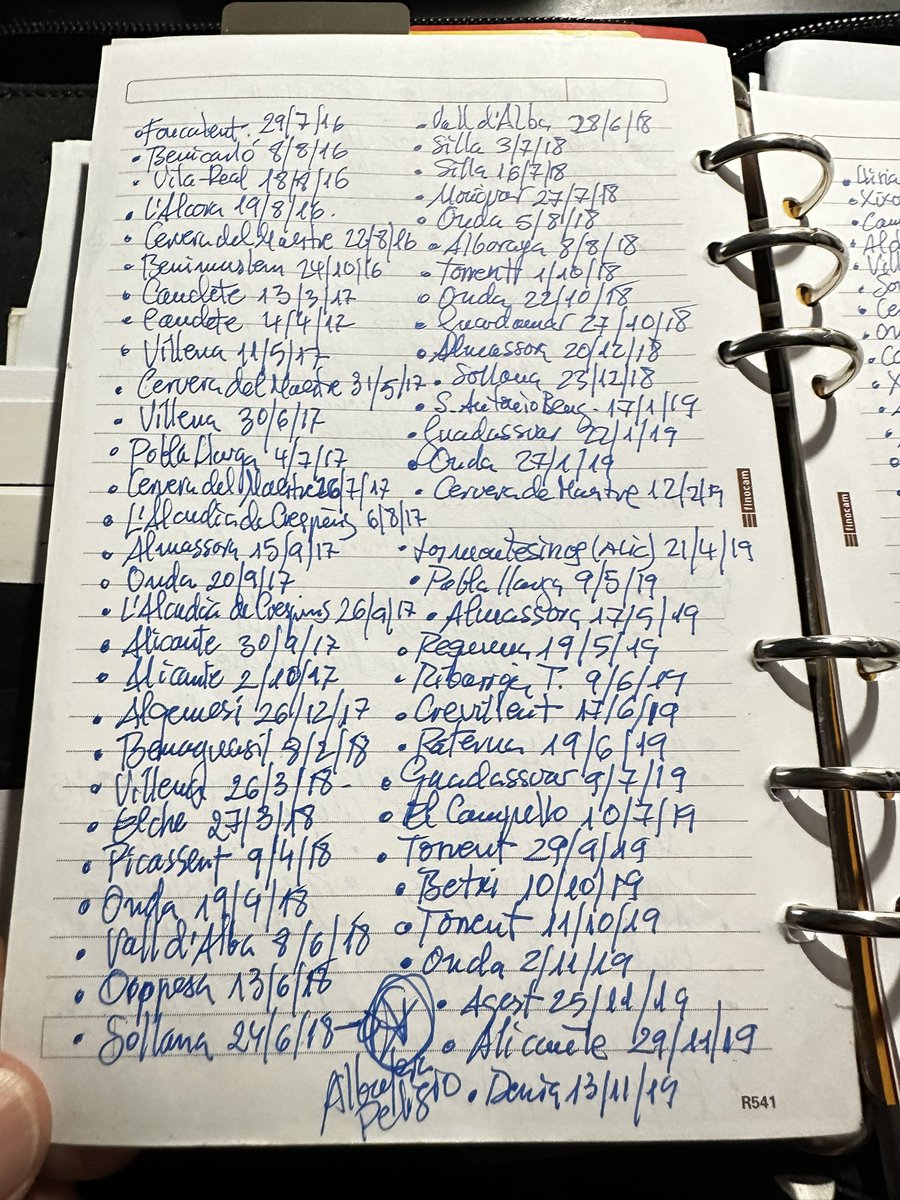 Foncalent. 29/7/16
Benicarló 8/8/16
Vila-Real 18/8/16
L'Alcora 19/8/16.
Cervera del Maestre 22/8/16
Benimuslem 24/10/16
Caudete 13/3/17
Caudete 4/4/17
Villena 11/5/17
Cervera del Maestre 31/5/17
Villena 30/6/17
Pobla Llarga 4/7/17
Cervera del Maestre 26/7/17
L'Alcudia de Crespins 6/8/17
Almassora 15/9/17
Onda 20/9/17
L'Alcudia de Crespins 26/9/17
Alicante 30/9/17
Alicante 2/10/17
Algemesi 26/12/17
Benaguasil 8/2/18
Villena 26/3/18-
Elche 27/3/18
Picassent 9/4/18
Onda 19/4/18
Vall d'Alba 8/6/18
Oropesa 13/6/18
Sollana 24/6/18
Albufera
Peligro
Vall d'Alba 28/6/18
Silla 3/7/18
Silla 16/7/18
Monóvar 27/7/18
Onda 5/8/18
Alboraya 8/8/18
Torrent 1/10/18
Onda 22/10/18
Guardamar 27/10/18
Almassora 20/12/18
Sollana 23/12/18
S. Antonio Benag. 17/1/19
Guadassuar 22/1/19
Onda 27/1/19
Cervera de Maestre 12/2/19
Los montesinos (Alic) 21/4/19
Pobla llarga 9/5/19
Almassora 17/5/19
Requena 19/5/19
Ribarroja T. 9/6/19
Crevillent 17/6/19
Paterna 19/6/19
Guadassuar 9/7/19
El Campello 10/7/19
Torrent 29/9/19
Betxi 10/10/19
Torrent 11/10/19
Onda 2/11/19
Agest 25/11/19
Alicante 29/11/19
Denia 13/11/19
R541
finocam
finocam